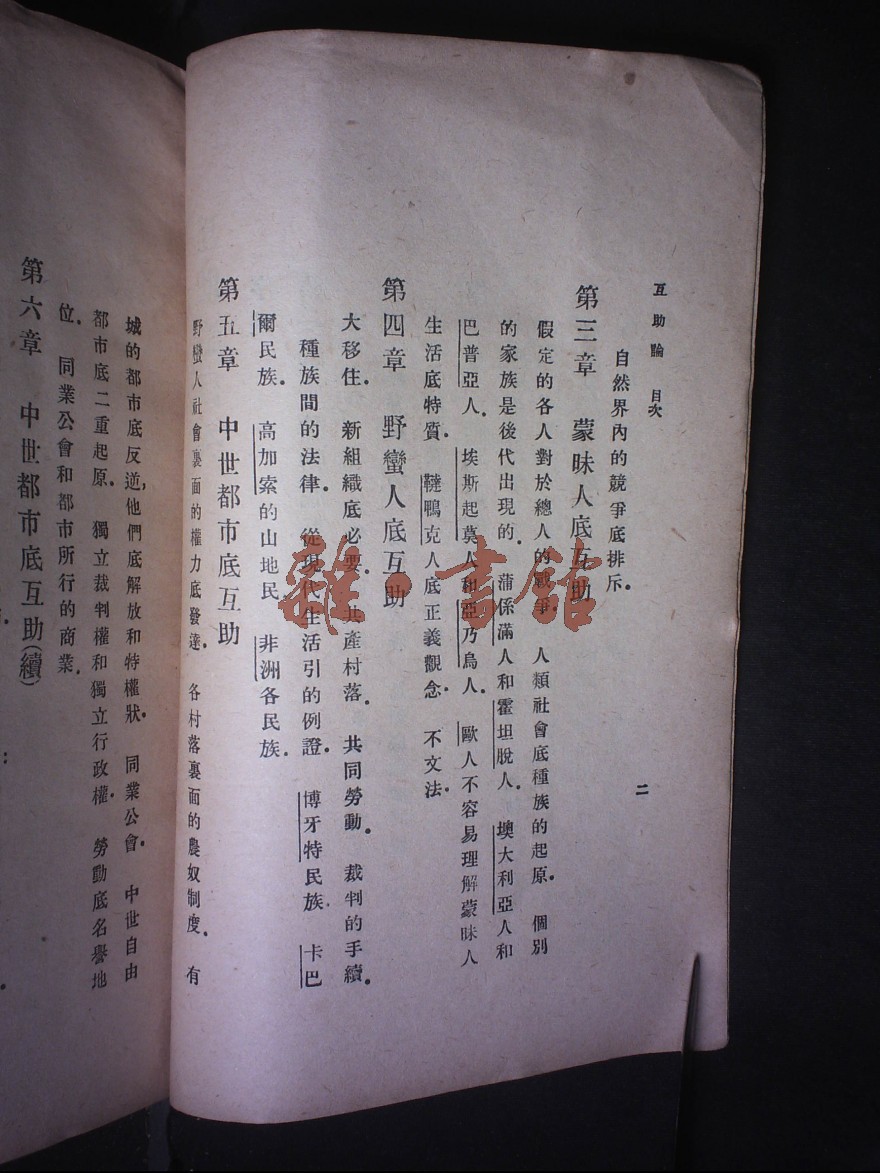 互助論　目次
二
自然界內的競爭底排斥．
第三章　蒙昧人底互助
假定的各人對於總人的戰爭．　人類社會底種族的起原．　個別
的家族是後代出現的．　蒲係滿人和霍坦脫人．　墺大利亞人和
巴普亞人．　埃斯起莫人和亞乃烏人．　歐人不容易理解蒙昧人
生活底特質．　韃鴨克人底正義觀念．　不文法．
第四章　野蠻人底互助
大移住．　新組織底必要．　共產村落．　共同勞動．　裁判的手續．
種族間的法律．　從現代生活引的例證．　博牙特民族　卡巴
爾民族．　高加索的山地民．　非洲各民族．
第五章　中世都市底互助
野蠻人社會裏面的權力底發達．　各村落裏面的農奴制度．　有
城的都市底反逆，他們底解放和特權狀．　同業公會．　中世自由
都市底二重起原．　獨立裁判權和獨立行政權．　勞動底名譽地
位．　同業公會和都市所行的商業．
第六章　中世都市底互助（續）
雜・書館